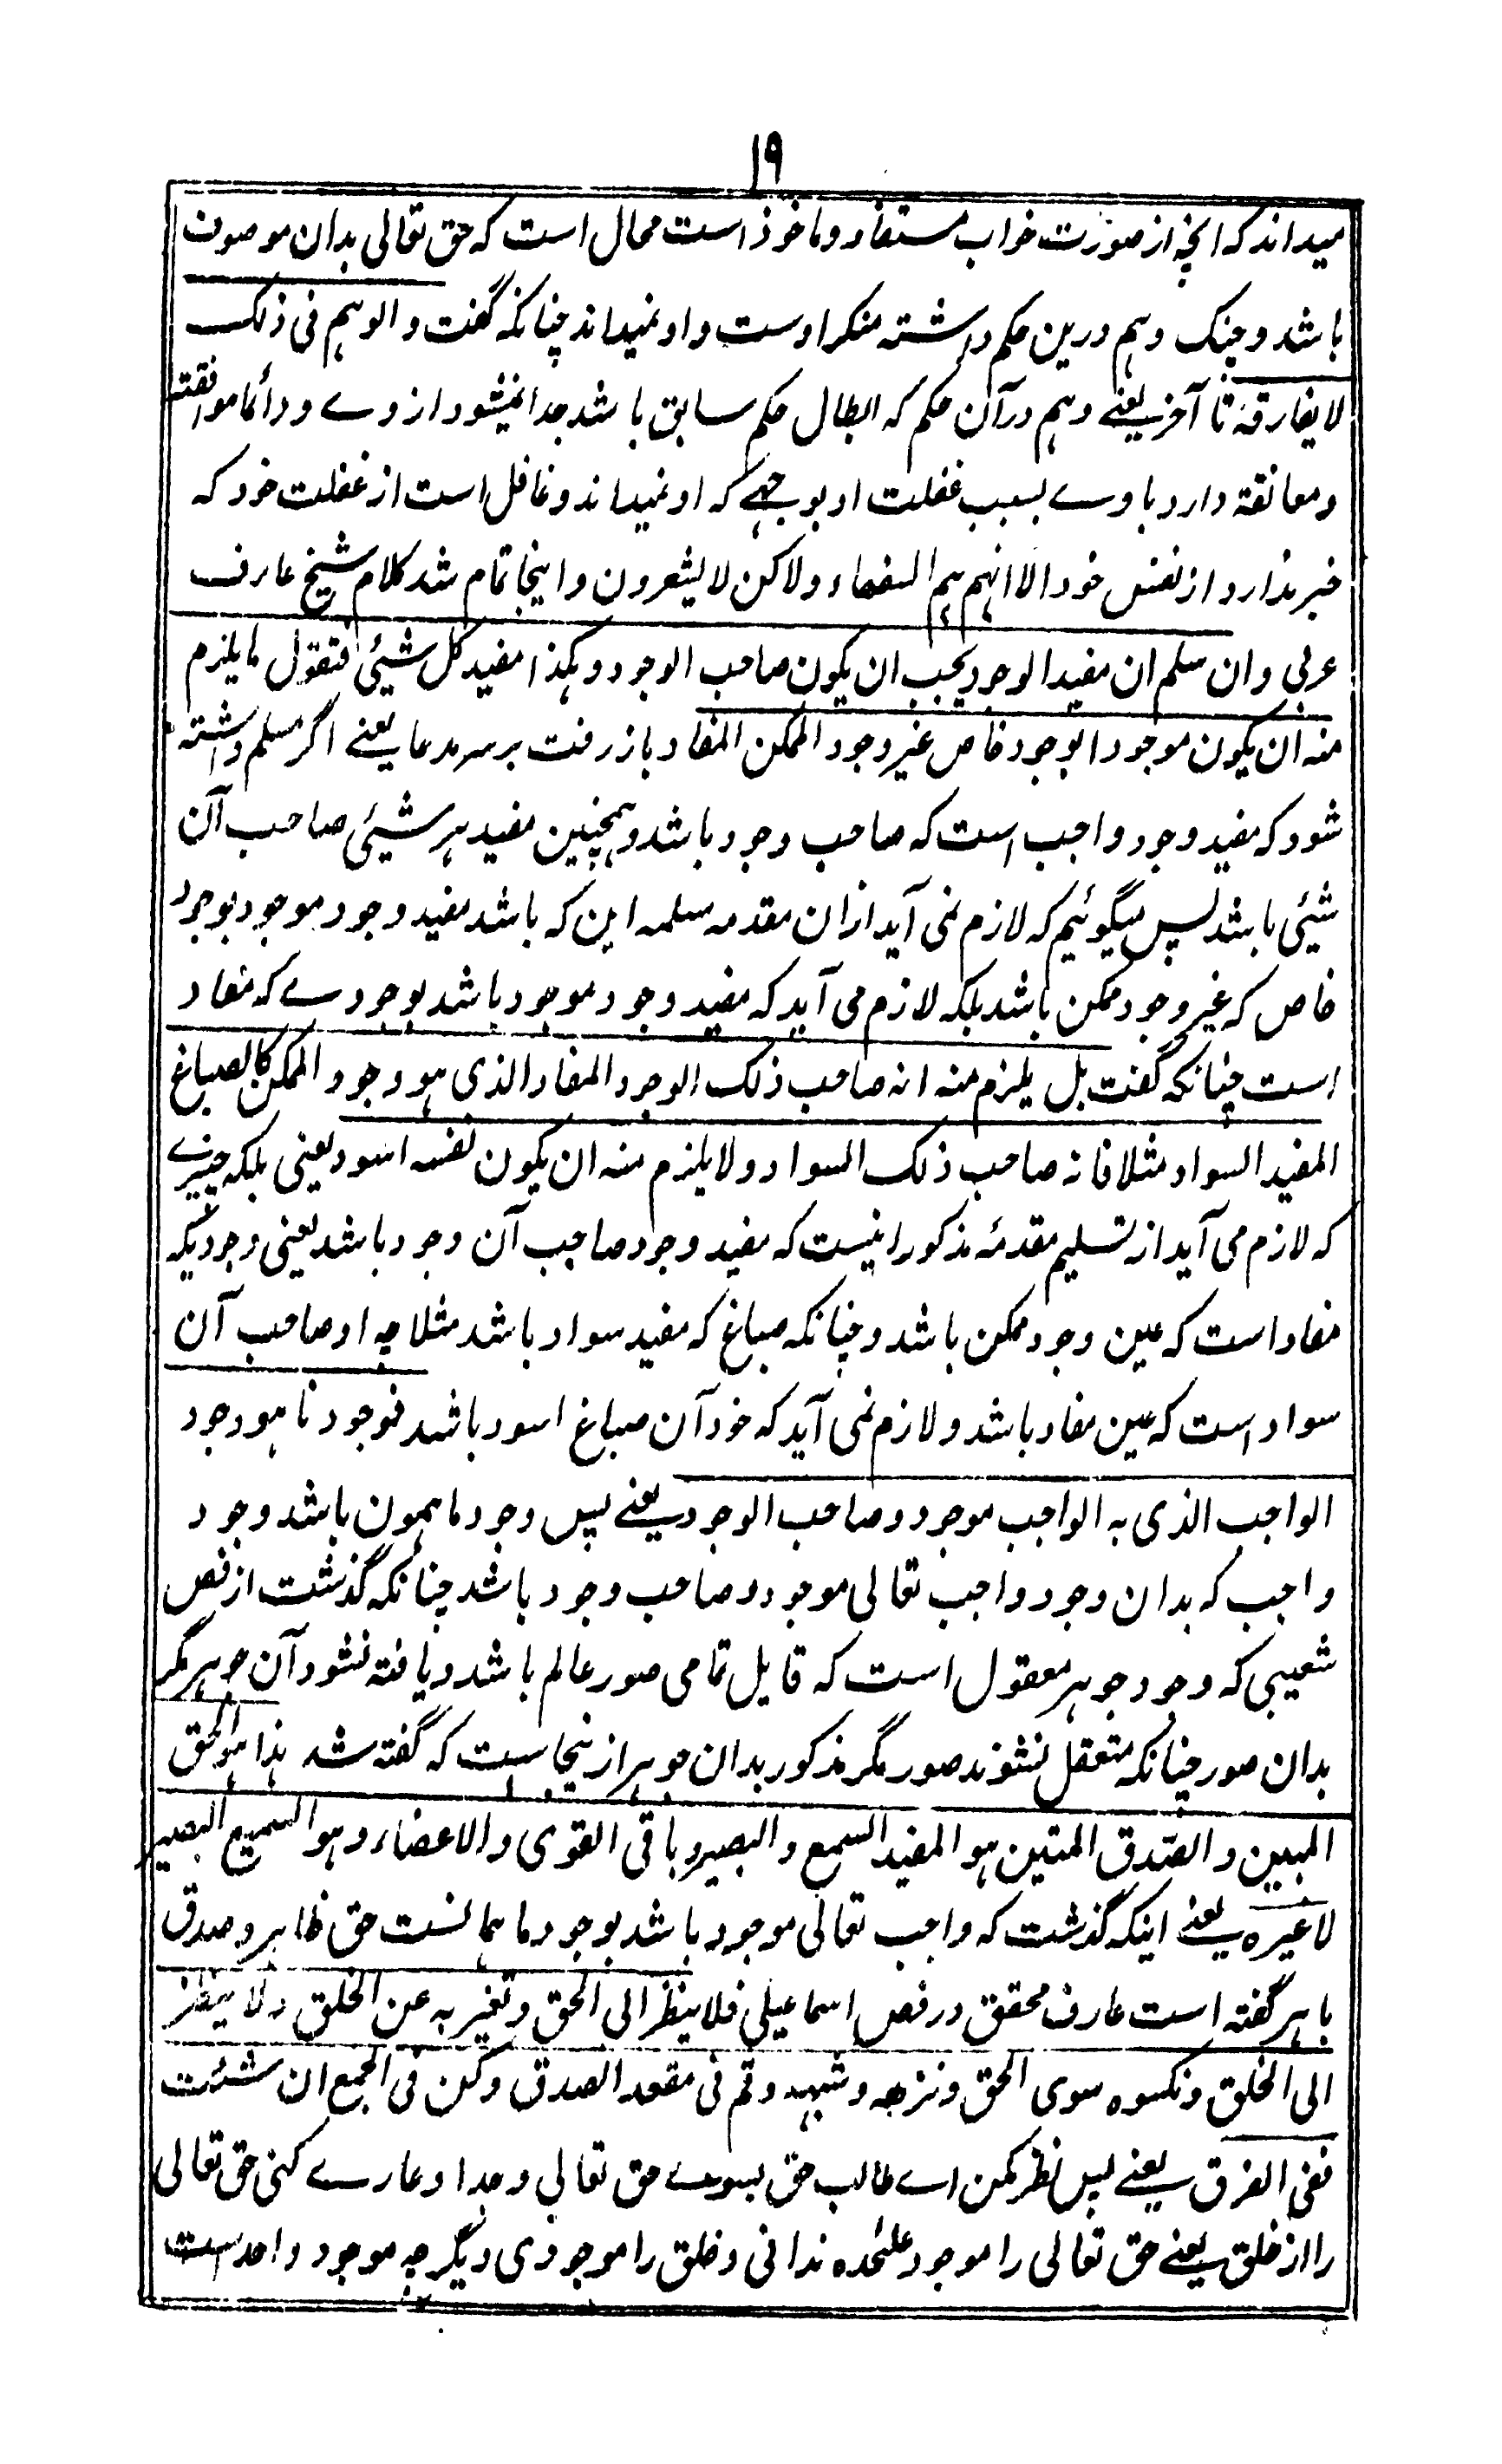 ۱۹
میداند که آنچه از صورت خواب مستفاد و ماخوذ است محال است که حق تعالی بدان موصوف
باشد و چنک وهم درین حکم داشته منکر اوست و او نمیداند چنانکه گفت و الوهم فی ذلک
لا یفارقه تا آخر یعنے وهم در آن حکم که ابطال حکم سابق باشد جدا نمیشود از وے و دائما موافقته
و معانقة دارد باوے بسبب غفلت او بوجهے که او نمیداند و غافل است از غفلت خود که
خبر ندارد از نفس خود الا انهم هم السفهاء ولاکن لا یشعرون و اینجا تمام شد کلام شیخ عارف
عربی و ان سلم ان مفید الوجود یجب ان یکون صاحب الوجود و هکذا مفید کل شیئی فنقول ما یلزم
منه ان یکون موجودا بوجود خاص غیر وجود الممکن المفاد باز رفت بر سر مدعا یعنے اگر مسلم داشته
شود که مفید وجود واجب است که صاحب وجود باشد و همچنین مفید هر شیئی صاحب آن
شیئی باشد پس میگوئیم که لازم نمی آید ازان مقدمه مسلمه این که باشد مفید وجود موجود بوجود
خاص که غیر وجود ممکن باشد بلکه لازم می آید که مفید وجود موجود باشد بوجودے که مفاد
است چنانکه گفت بل یلزم منه انه صاحب ذلک الوجود المفاد الذی هو وجود الممکن کالصباغ
المفید السواد مثلا فانه صاحب ذلک السواد و لا یلزم منه ان یکون نفسه اسود یعنی بلکه چیزے
که لازم می آید از تسلیم مقدمۂ مذکور اینست که مفید وجود صاحب آن وجود باشد یعنی وجودیکه
مفاد است که عین وجود ممکن باشد و چنانکه صباغ که مفید سواد باشد مثلا چه او صاحب آن
سواد است که عین مفاد باشد و لازم نمی آید که خود آن صباغ اسود باشد فوجودنا هو وجود
الواجب الذی به الواجب موجود و صاحب الوجود یعنے پس وجود ما همون باشد وجود
واجب که بدان وجود واجب تعالی موجود و صاحب وجود باشد چنانکه گذشت از فص
شعیبی که وجود جوهر معقول است که قابل تمامی صور عالم باشد و یافته نشود آن جوهر مگر
بدان صور چنانکه متعقل نشوند صور مگر مذکور بدان جوهر ازینجا ست که گفته شد هذا هو الحق
المبین و الصّدق المتین هو المفید السمع و البصر و باقی القوی و الاعضاء و هو السمیع البصیر
لا غیره یعنے اینکه گذشت که واجب تعالی موجود باشد بوجود ما همانست حق ظاهر و صدق
باهر گفته است عارف محقق در فص اسماعیلی فلا ینظر الی الحق و تغیر به عن الخلق و لا ینظر
الی الخلق و نکسوه سوی الحق و نزهه و شبهه و قم فی مقعد الصدق و کن فی الجمع ان شئت
ففی الفرق یعنے پس نظر مکن اے طالب حق بسوے حق تعالی و جدا و عارے کنی حق تعالی
را از خلق یعنے حق تعالی را موجود علیحده ندانی و خلق را موجودی دیگر چه موجود واحد است